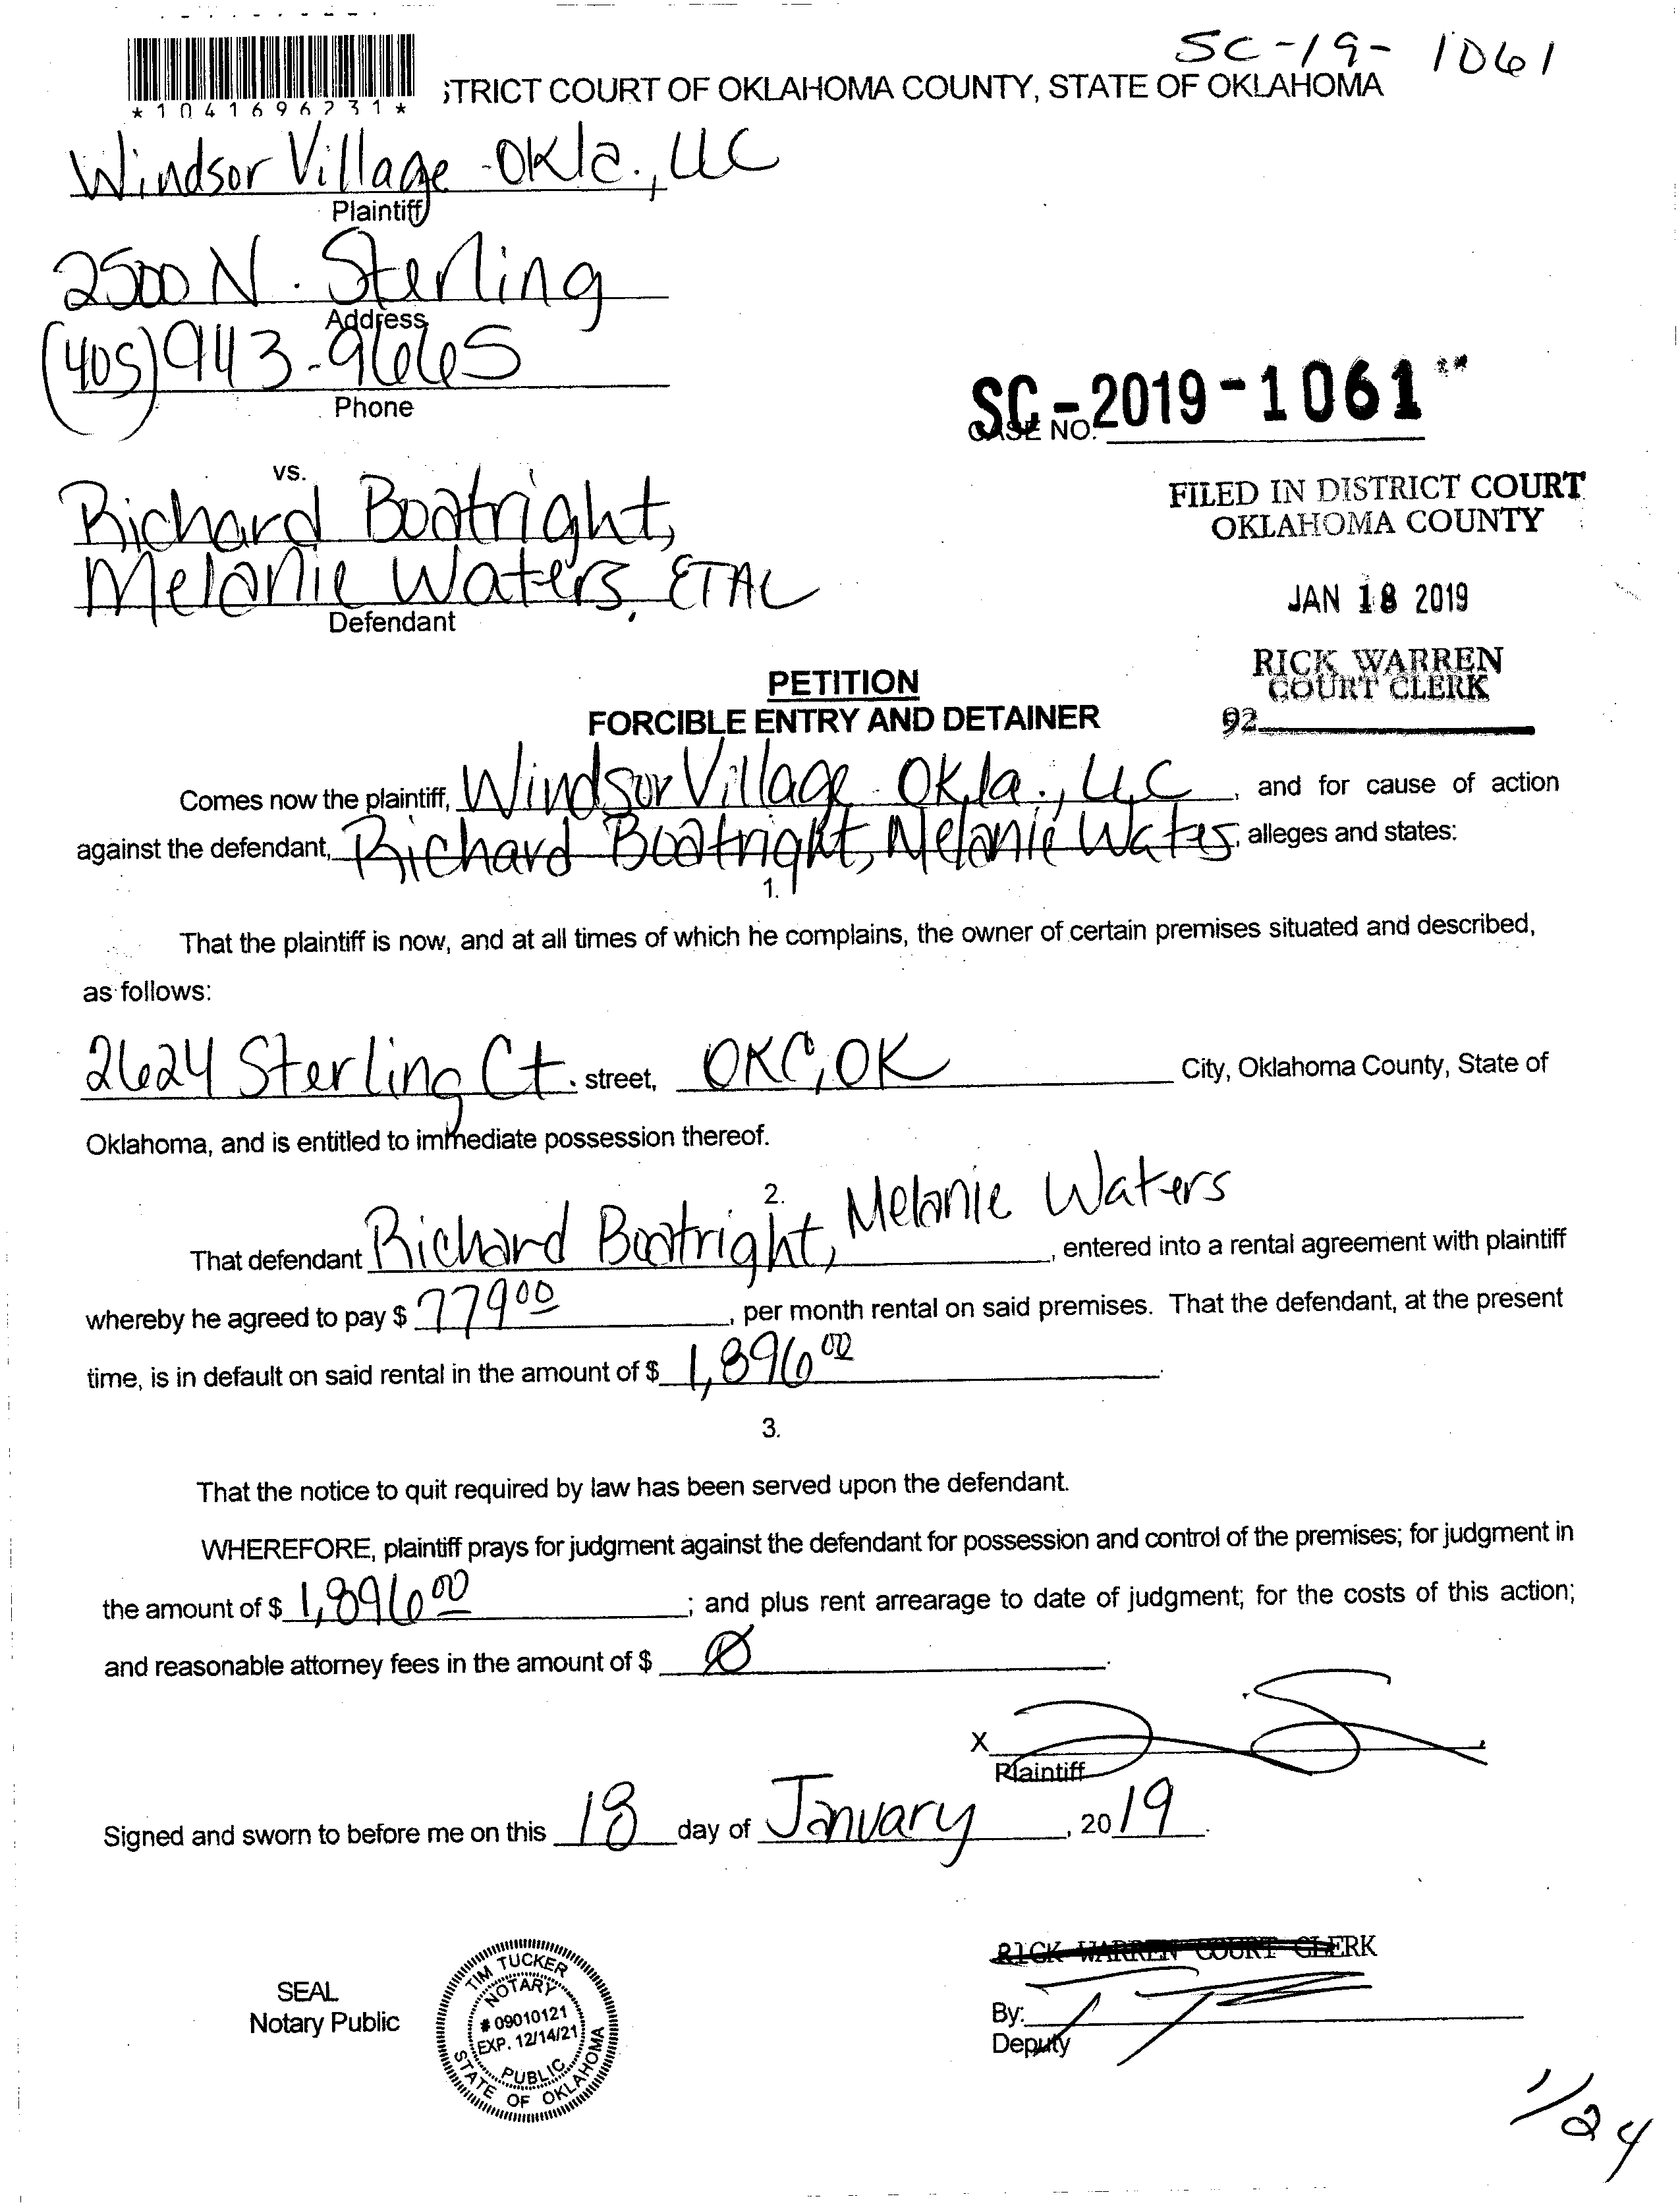 SC-19-1061
*1041696231*
STRICT COURT OF OKLAHOMA COUNTY, STATE OF OKLAHOMA
Windsor Village -Okla., LLC
Plaintiff
2500 N. Sterling
Address
(405) 943-9665
Phone
SC-2019-1061
CASE NO.
vs.
Richard Boatright,
Melanie Waters, ETAL
Defendant
FILED IN DISTRICT COURT
OKLAHOMA COUNTY
JAN 18 2019
RICK WARREN
COURT CLERK
92
PETITION
FORCIBLE ENTRY AND DETAINER
Comes now the plaintiff, Windsor Village - Okla., LLC, and for cause of action
against the defendant, Richard Boatright, Melanie Waters, alleges and states:
1.
That the plaintiff is now, and at all times of which he complains, the owner of certain premises situated and described,
as follows:
2624 Sterling Ct. street, OKC, OK City, Oklahoma County, State of
Oklahoma, and is entitled to immediate possession thereof.
2.
That defendant Richard Boatright, Melanie Waters, entered into a rental agreement with plaintiff
whereby he agreed to pay $ 779 00, per month rental on said premises. That the defendant, at the present
time, is in default on said rental in the amount of $ 1,896 00.
3.
That the notice to quit required by law has been served upon the defendant.
WHEREFORE, plaintiff prays for judgment against the defendant for possession and control of the premises; for judgment in
the amount of $ 1,896 00; and plus rent arrearage to date of judgment; for the costs of this action;
and reasonable attorney fees in the amount of $ Ø.
X
Plaintiff
Signed and sworn to before me on this 18 day of January, 2019.
SEAL
Notary Public
TIM TUCKER
NOTARY
# 09010121
EXP. 12/14/21
PUBLIC
STATE OF OKLAHOMA
RICK WARREN COURT CLERK
By:
Deputy
1/24